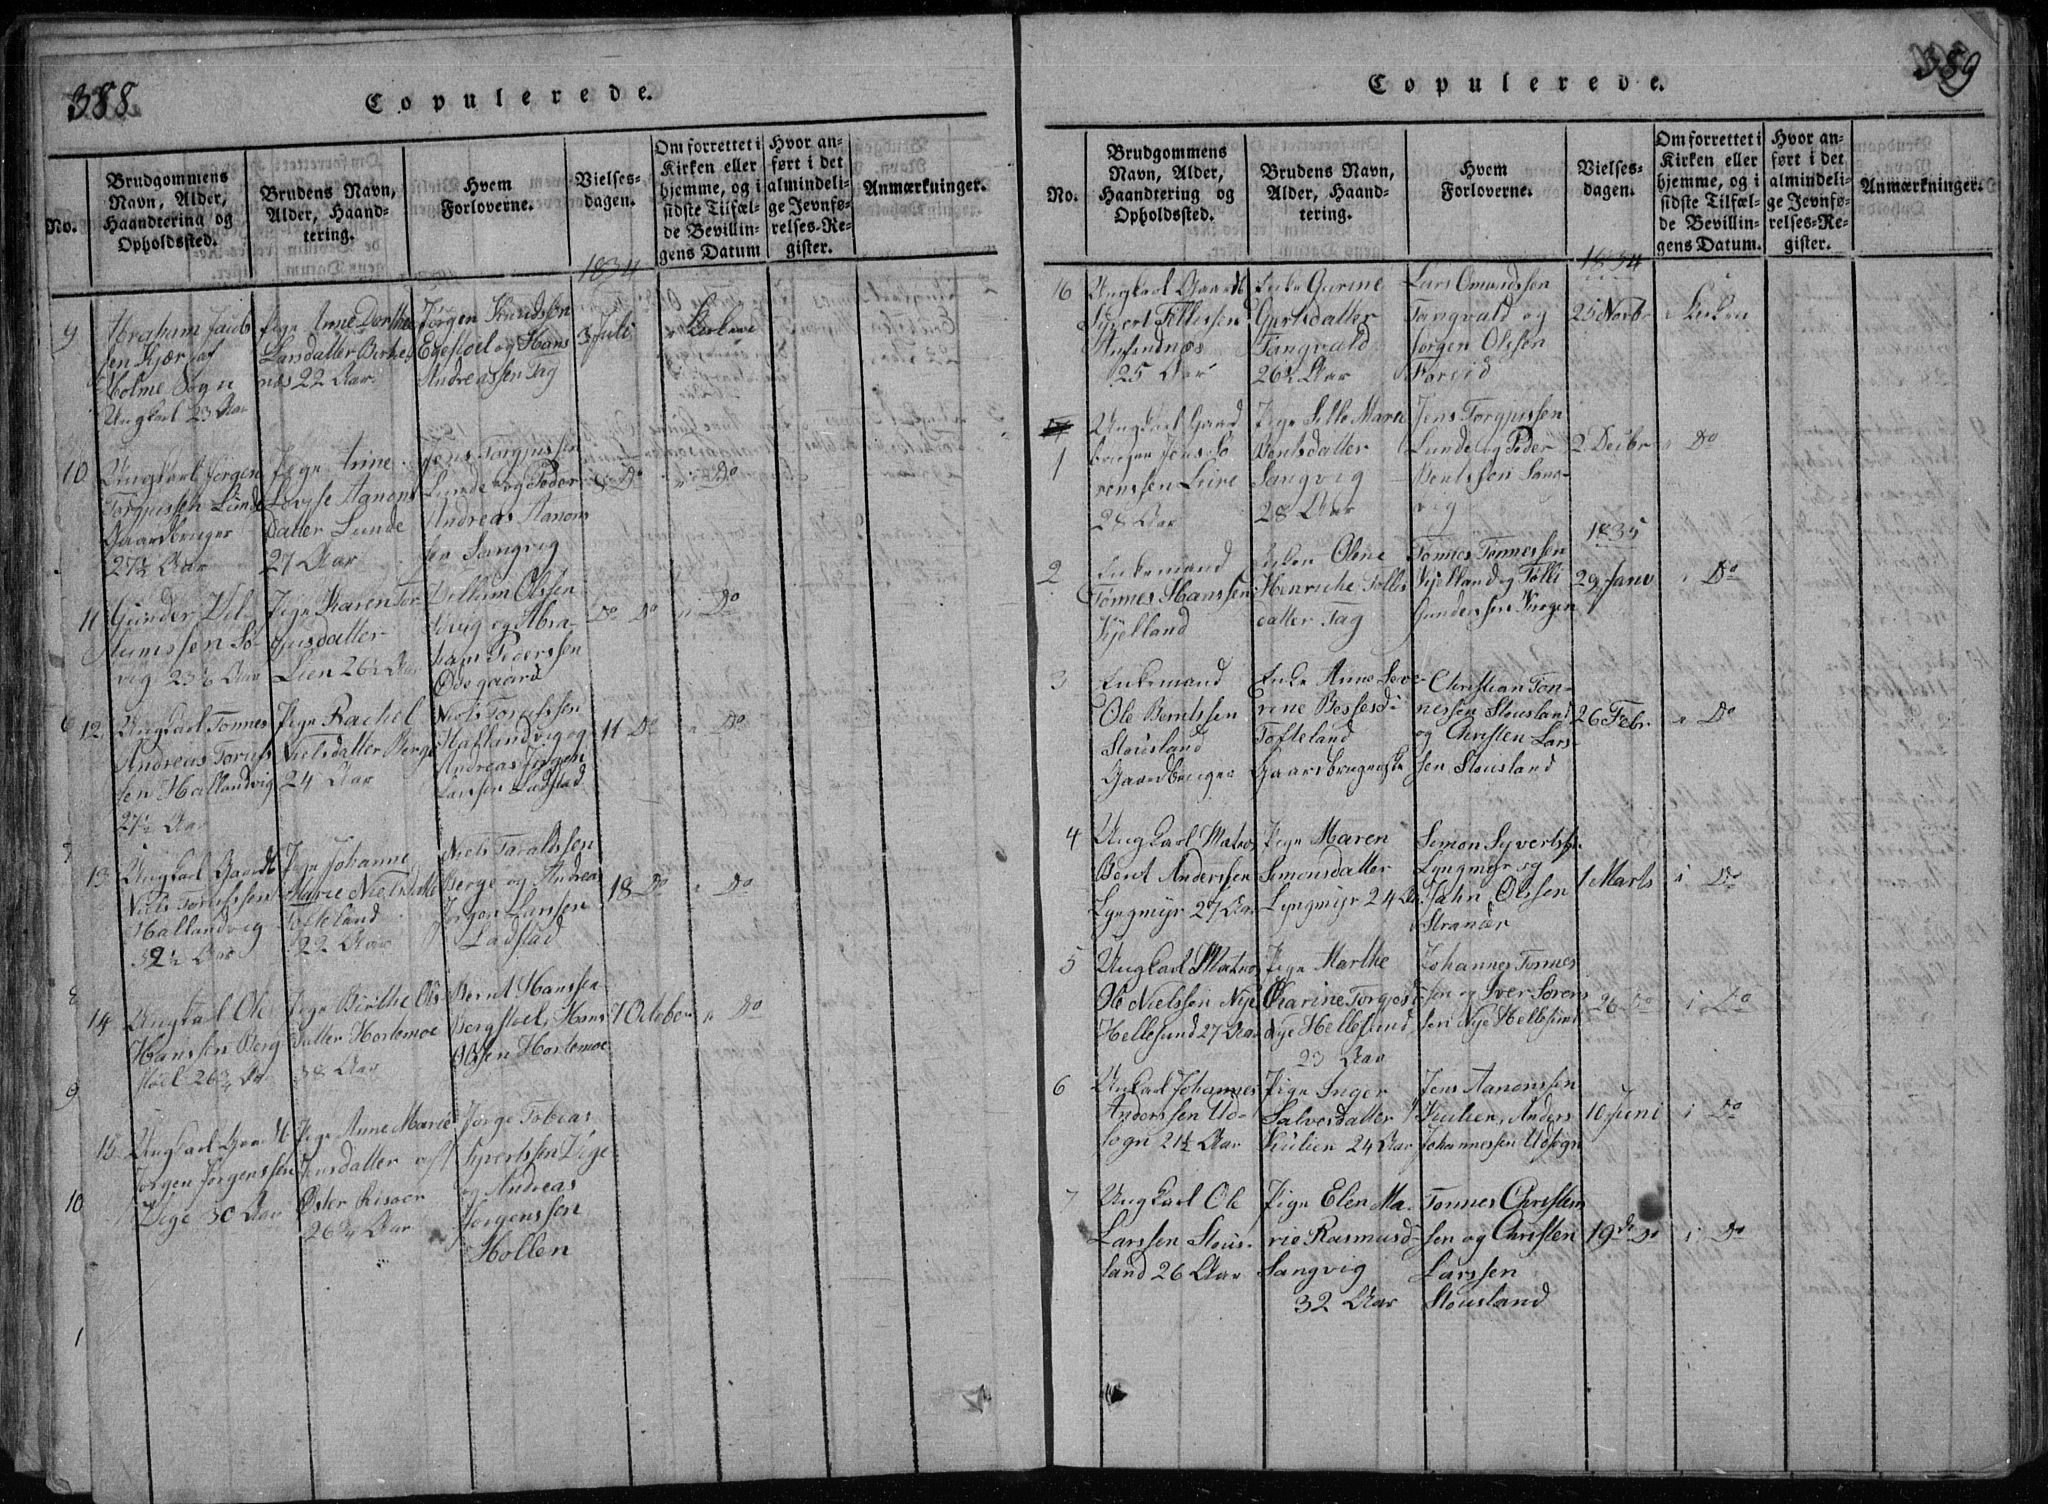 388
Copulerede.
No.
Brudgommens
Navn, Alder,
Haandtering og
Opholdssted.
Brudens Navn,
Alder, Haand-
tering.
Hvem
Forloverne.
Vielses-
dagen.
Om forrettet i
Kirken eller
hjemme, og i
sidste Tilfæl-
de Bevillin-
gens Datum
Hvor an-
ført i det
almindeli-
ge Jevnfø-
relses-Re-
gister.
Anmærkninger.
1834
9
Abraham Jacob
sen Kjær af
Holme Sogn
Ungkarl 23 Aar
Pige Anne Dorthe
Larsdatter Berhe
næs 22 Aar
Jørgen Knudssøn
Egestoel og Hans
Andreassen Tag
3 Juli
10
Ungkarl Jørgen
Torgiussen Lunde
Gaardbruger
27½ Aar
Pige Anne
Lovise Aanons
datter Lunde
27 Aar
Jens Torgiussen
Lunde og Peder
Andreas Aanons
sen Sangvig
3 Do
i Do
11
Gunder Vel
lumssen Sø-
vig 23 1/6 Aar
Pige Karen Tor
gjusdatter
Lien 26½ Aar
Vellum Olssen
Søvig og Abra-
ham Pederssen
Odegaard
Do Do
i Do
12
Ungkarl Tønnes
Andreas Torufs
sen Hallandvig
27½ Aar
Pige Rachel
Nielsdatter Berge
24 Aar
Niels Torufssen
Hallandvig og
Andreas Jørgen
Larssen Ladstad
11 Do
i Do
13
Ungkarl Gaardb
Niels Torufssen
Hallandvig
32½ Aar
Pige Johanne
Marie Nielsdatte
Tofteland
22 Aar
Niels Taraldssen
Berge og Andreas
Jørgen Larssen
Ladstad
18 Do
i Do
14
Ungkarl Ole
Hanssen Berg
stoel 26¾ Aar
Pige Birthe Ols
datter Hortemoe
38 Aar
Bernt Hanssen
Bergstoel, Hans
Olssen Hortemoe
7 October
i Do
15
Ungkarl Gaardb
Jørgen Jørgenssen
Vige 30 Aar
Pige Anne Marie
Jensdatter af
Øster Risøer
26¾ Aar
Jørge Tobias
Syvertssen Vige
og Andreas
Jørgenssen
Hollen
389
Copulerede.
No.
Brudgommens
Navn, Alder,
Haandtering og
Opholdssted.
Brudens Navn,
Alder, Haand-
tering.
Hvem
Forloverne.
Vielses-
dagen.
Om forrettet i
Kirken eller
hjemme, og i
sidste Tilfæl-
de Bevillin-
gens Datum.
Hvor an-
ført i det
almindeli-
ge Jevnfø-
relses-Re-
gister.
Anmærkninger.
1834
16
Ungkarl Gaardb
Syvert Tellefssen
25 Aar
Enke Gurine
Gertsdatter
Tangvald
26½ Aar
Lars Omundssen
Tangvald og
Jørgen Olssen
25 Novbr
i Kirken
1
Ungkarl Gaard
bruger Jens Sø
renssen Leire
28 Aar
Pige Sille Marie
Bentsdatter
Sangvig
28 Aar
Jens Torgjussen
Lunde og Peder
Bentssen Sang
vig
2 Decbr
i Do
1835
2
Enkemand
Tønnes Hanssen
Kjelland
Enken Oline
Henriche Tellefs
datter Tag
Tønnes Tønnessen
Kjelland og Tølli
Gunderssen Krogen
29 Janv
i Do
3
Enkemand
Ole Berntssen
Stousland
Gaardbruger
Enke Anne Seve-
rine Bessesd:
Tofteland
Gaardbrugerske
Christian Tøn-
nessen Stousland
og Christen Lars-
sen Stousland
26 Febr
i Do
4
Ungkarl Matros
Bent Anderssen
Lyngmyr 27 Aar
Pige Maren
Simonsdatter
Lyngmyr 24 Aar
Simon Syvertssen
Lyngmyr og
Jahn Olssen
Stranær
1 Marts
i Do
5
Ungkarl Matros
Ole Nielssen Nye
Hellesund 27 Aar
Pige Marthe
Karine Torgersd:
Nye Hellesund
23 Aar
Johannes Tønnes
sen og Iver Sørens
sen Nye Hellesund
26 Do
i Do
6
Ungkarl Johannes
Anderssen Ud-
sogn 21½ Aar
Pige Inger
Salvesdatter
Kiulien 24 Aar
Jens Aanonssen
Kiulien, Anders
Johannessen Udsogn
10 Juni
i Do
7
Ungkarl Ole
Larssen Stous-
land 26 Aar
Pige Elen Ma-
rie Rasmusd:
Sangvig
32 Aar
Tønnes Christens
sen og Christen
Larssen
Stousland
19de Do
i Do